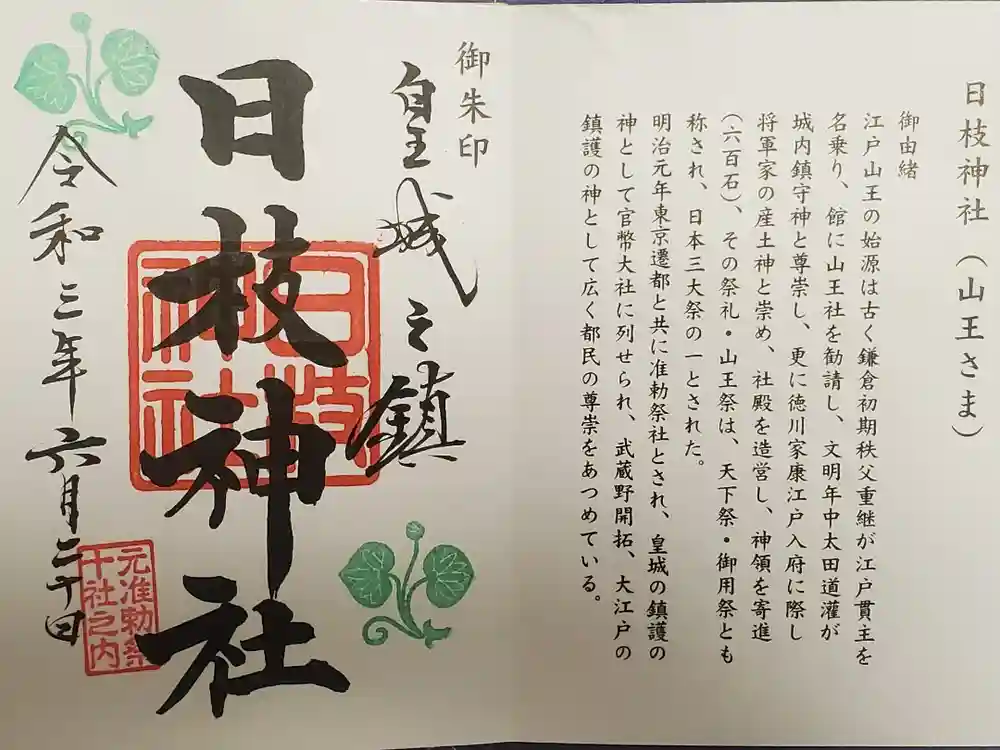 日枝神社(山王さま)
御由緒
江戸山王の始源は古く鎌倉初期秩父重継が江戸貫主を
名乗り、館に山王社を勧請し、文明年中太田道灌が
城内鎮守神と尊崇し、更に徳川家康江戸入府に際し
将軍家の産土神と崇め、社殿を造営し、神領を寄進
(六百石)、その祭礼・山王祭は、天下祭・御用祭とも
称され、日本三大祭の一とされた。
明治元年東京遷都と共に准勅祭社とされ、皇城の鎮護の
神として官幣大社に列せられ、武蔵野開拓、大江戸の
鎮護の神として広く都民の尊崇をあつめている。
御朱印
皇城之鎮
日枝神社
日枝
神社
令和三年六月二十日
元准勅祭
十社之内